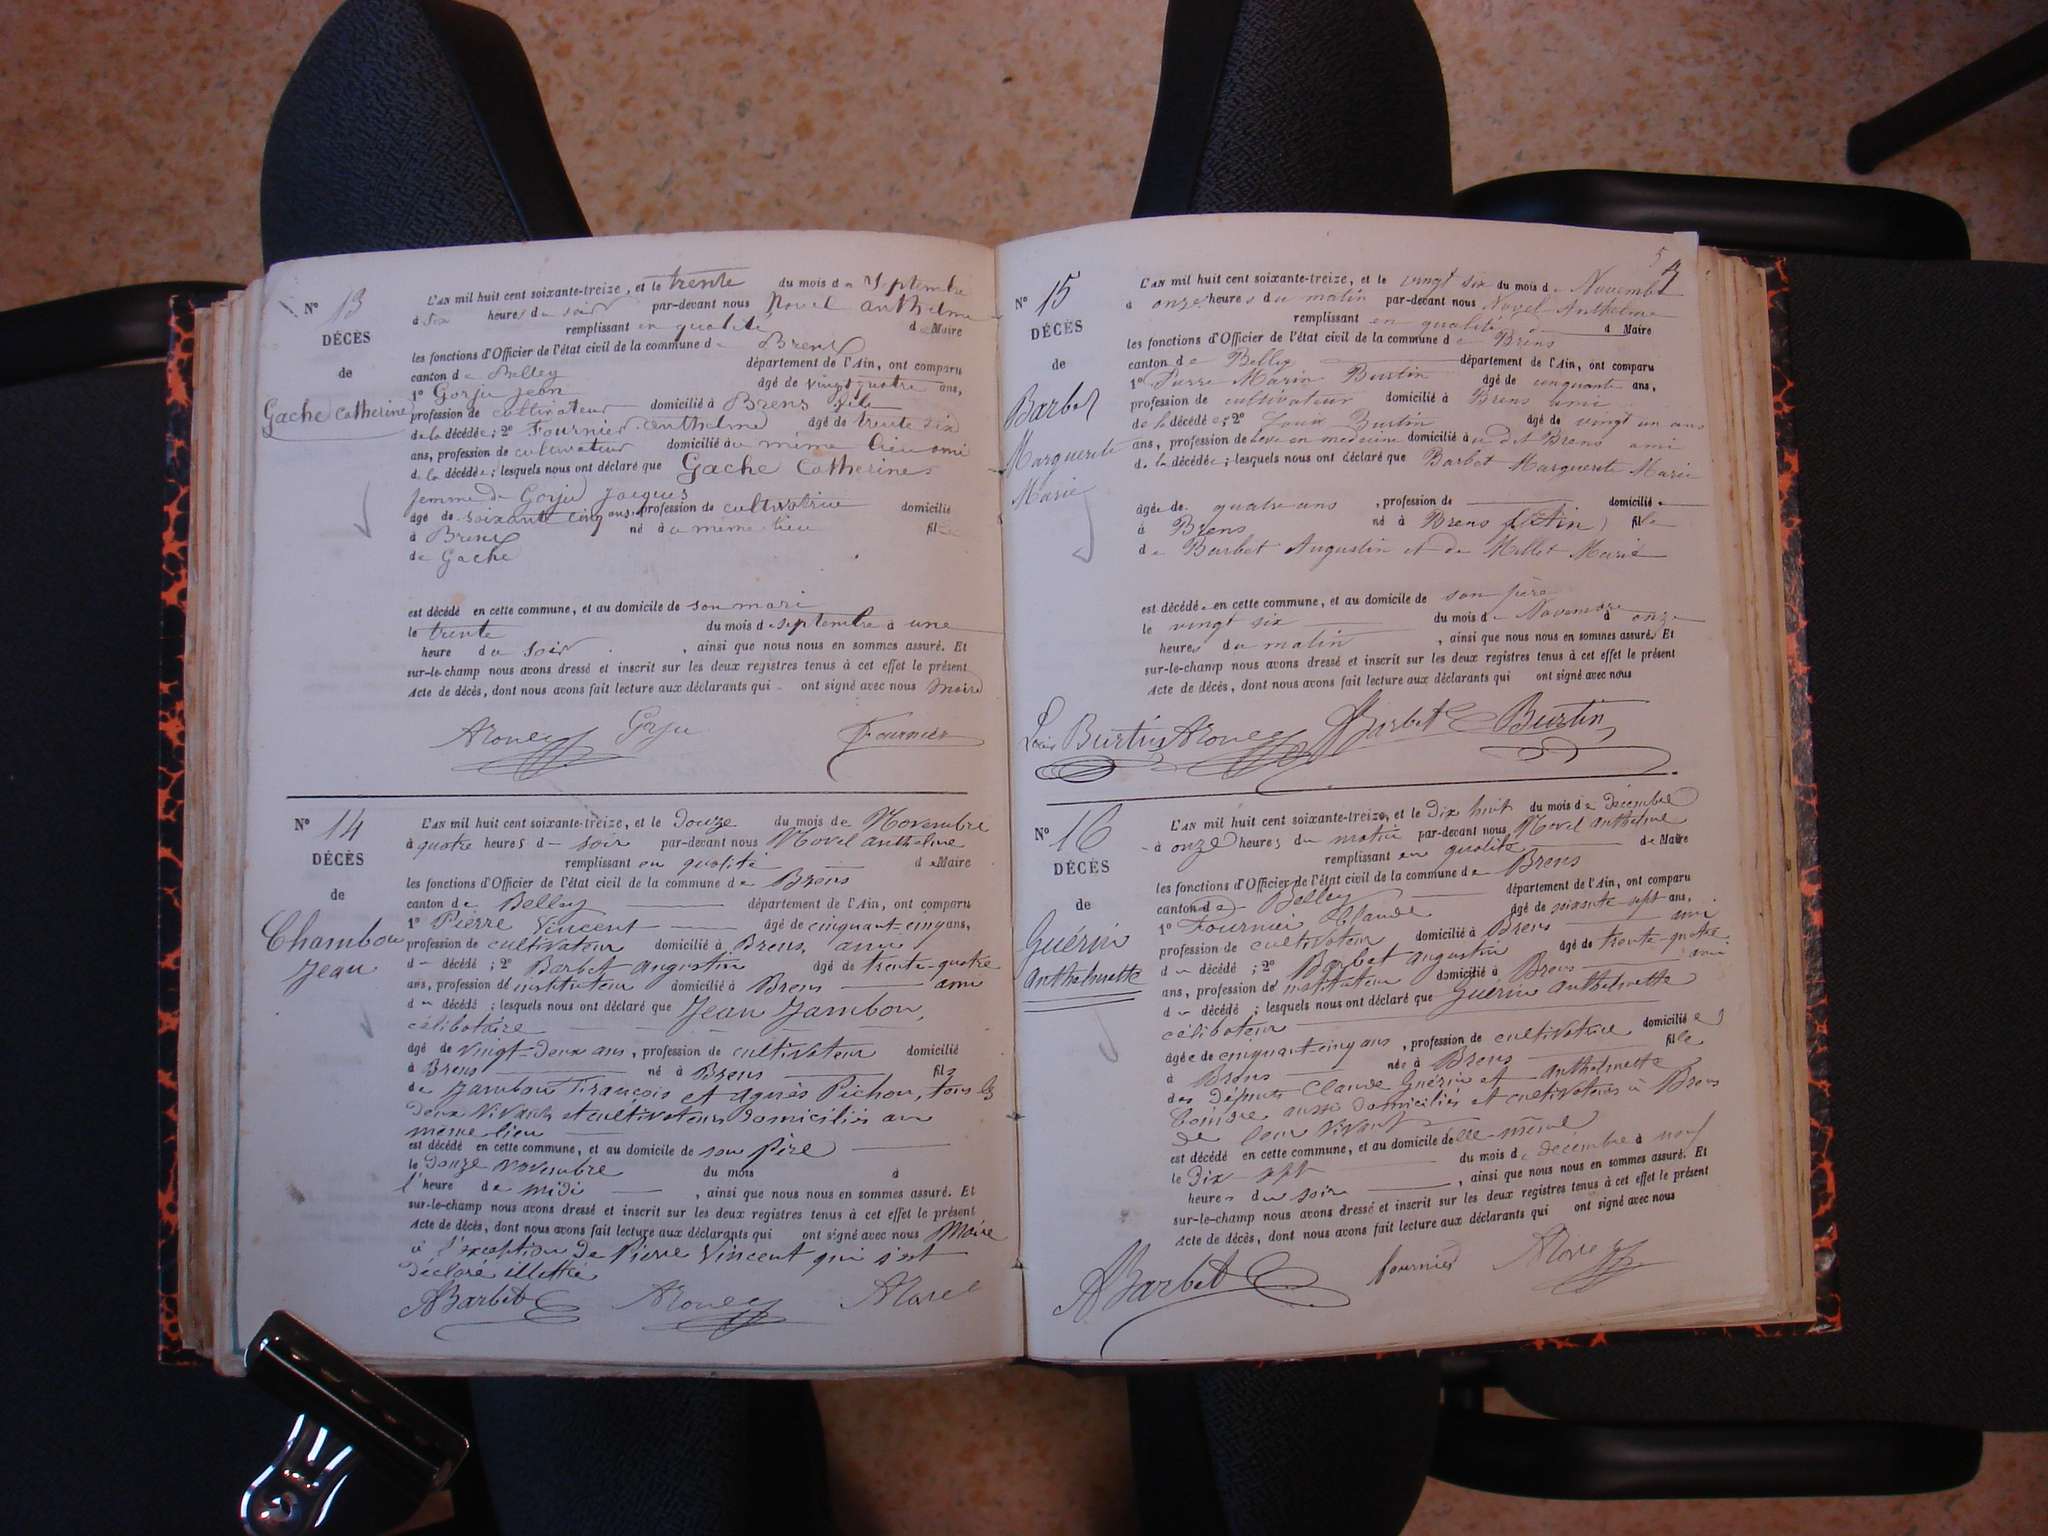 N° 13
DÉCÈS
de
Gache Catherine
L'AN mil huit cent soixante-treize, et le trente du mois de Septembre
à six heures du soir par-devant nous Novel Anthelme
remplissant en qualité de Maire
les fonctions d'Officier de l'état civil de la commune de Brens
canton de Belley département de l'Ain, ont comparu
1° Gorju Jean âgé de vingt quatre ans,
profession de cultivateur domicilié à Brens fils
de la décédée; 2° Fournier Anthelme âgé de trente six
ans, profession de cultivateur domicilié au même lieu ami
de la décédée; lesquels nous ont déclaré que Gache Catherine
femme de Gorju Jacques
âgé de soixante cinq ans, profession de cultivatrice domicilié
à Brens né à au même lieu fille
de Gache
est décédé en cette commune, et au domicile de son mari
le trente du mois de septembre à une
heure du soir, ainsi que nous nous en sommes assuré. Et
sur-le-champ nous avons dressé et inscrit sur les deux registres tenus à cet effet le présent
Acte de décès, dont nous avons fait lecture aux déclarants qui ont signé avec nous Maire
ANovel Gorju Fournier
N° 14
DÉCÈS
de
Chambou
Jean
L'AN mil huit cent soixante-treize, et le douze du mois de Novembre
à quatre heures du soir par-devant nous Novel Anthelme
remplissant en qualité de Maire
les fonctions d'Officier de l'état civil de la commune de Brens
canton de Belley département de l'Ain, ont comparu
1° Pierre Vincent âgé de cinquant-cinq ans,
profession de cultivateur domicilié à Brens, ami
du décédé; 2° Barbet Augustin âgé de trente-quatre
ans, profession de instituteur domicilié à Brens ami
du décédé; lesquels nous ont déclaré que Jean Jambon,
célibataire
âgé de vingt-deux ans, profession de cultivateur domicilié
à Brens né à Brens fils
de Jambon François et Agnès Pichon, tous les
deux vivants et cultivateurs domiciliés au
même lieu
est décédé en cette commune, et au domicile de son père
le douze novembre du mois à
l'heure de midi, ainsi que nous nous en sommes assuré. Et
sur-le-champ nous avons dressé et inscrit sur les deux registres tenus à cet effet le présent
Acte de décès, dont nous avons fait lecture aux déclarants qui ont signé avec nous Maire
à l'exception de Pierre Vincent qui s'est
déclaré illettré
ABarbet ANovel
5
N° 15
DÉCÈS
de
Barbet
Marguerite
Marie
L'AN mil huit cent soixante-treize, et le vingt six du mois de Novembre
à onze heures du matin par-devant nous Novel Anthelme
remplissant en qualité de Maire
les fonctions d'Officier de l'état civil de la commune de Brens
canton de Belley département de l'Ain, ont comparu
1° Pierre Marin Burtin âgé de cinquante ans,
profession de cultivateur domicilié à Brens ami
de la décédée; 2° Louis Burtin âgé de vingt un ans
ans, profession de élève en médecine domicilié à u dit Brens ami
de la décédée; lesquels nous ont déclaré que Barbet Marguerite Marie
âgée de quatre ans, profession de domicilié
à Brens né à Brens (Ain) fille
de Barbet Augustin et de Millet Marie
est décédée en cette commune, et au domicile de son père
le vingt six du mois de Novembre à onze
heures du matin, ainsi que nous nous en sommes assuré. Et
sur-le-champ nous avons dressé et inscrit sur les deux registres tenus à cet effet le présent
Acte de décès, dont nous avons fait lecture aux déclarants qui ont signé avec nous
Louis Burtin ANovel ABarbet Burtin
N° 16
DÉCÈS
de
Guérin
Anthelmette
L'AN mil huit cent soixante-treize, et le dix huit du mois de décembre
à onze heures du matin par-devant nous Novel Anthelme
remplissant en qualité de Maire
les fonctions d'Officier de l'état civil de la commune de Brens
canton de Belley département de l'Ain, ont comparu
1° Fournier Claude âgé de soixante-sept ans,
profession de cultivateur domicilié à Brens ami
du décédé; 2° Barbet Augustin âgé de trente-quatre
ans, profession de instituteur domicilié à Brens ami
du décédé; lesquels nous ont déclaré que Guérin Anthelmette
célibataire
âgée de cinquant-cinq ans, profession de cultivatrice domiciliée
à Brens née à Brens fille
des défunts Claude Guérin et Anthelmette
aussi domiciliés et cultivateurs à Brens
de leur vivant
est décédé en cette commune, et au domicile de elle-même
le dix-sept du mois de décembre à neuf
heures du soir, ainsi que nous nous en sommes assuré. Et
sur-le-champ nous avons dressé et inscrit sur les deux registres tenus à cet effet le présent
Acte de décès, dont nous avons fait lecture aux déclarants qui ont signé avec nous
ABarbet fournier ANovel